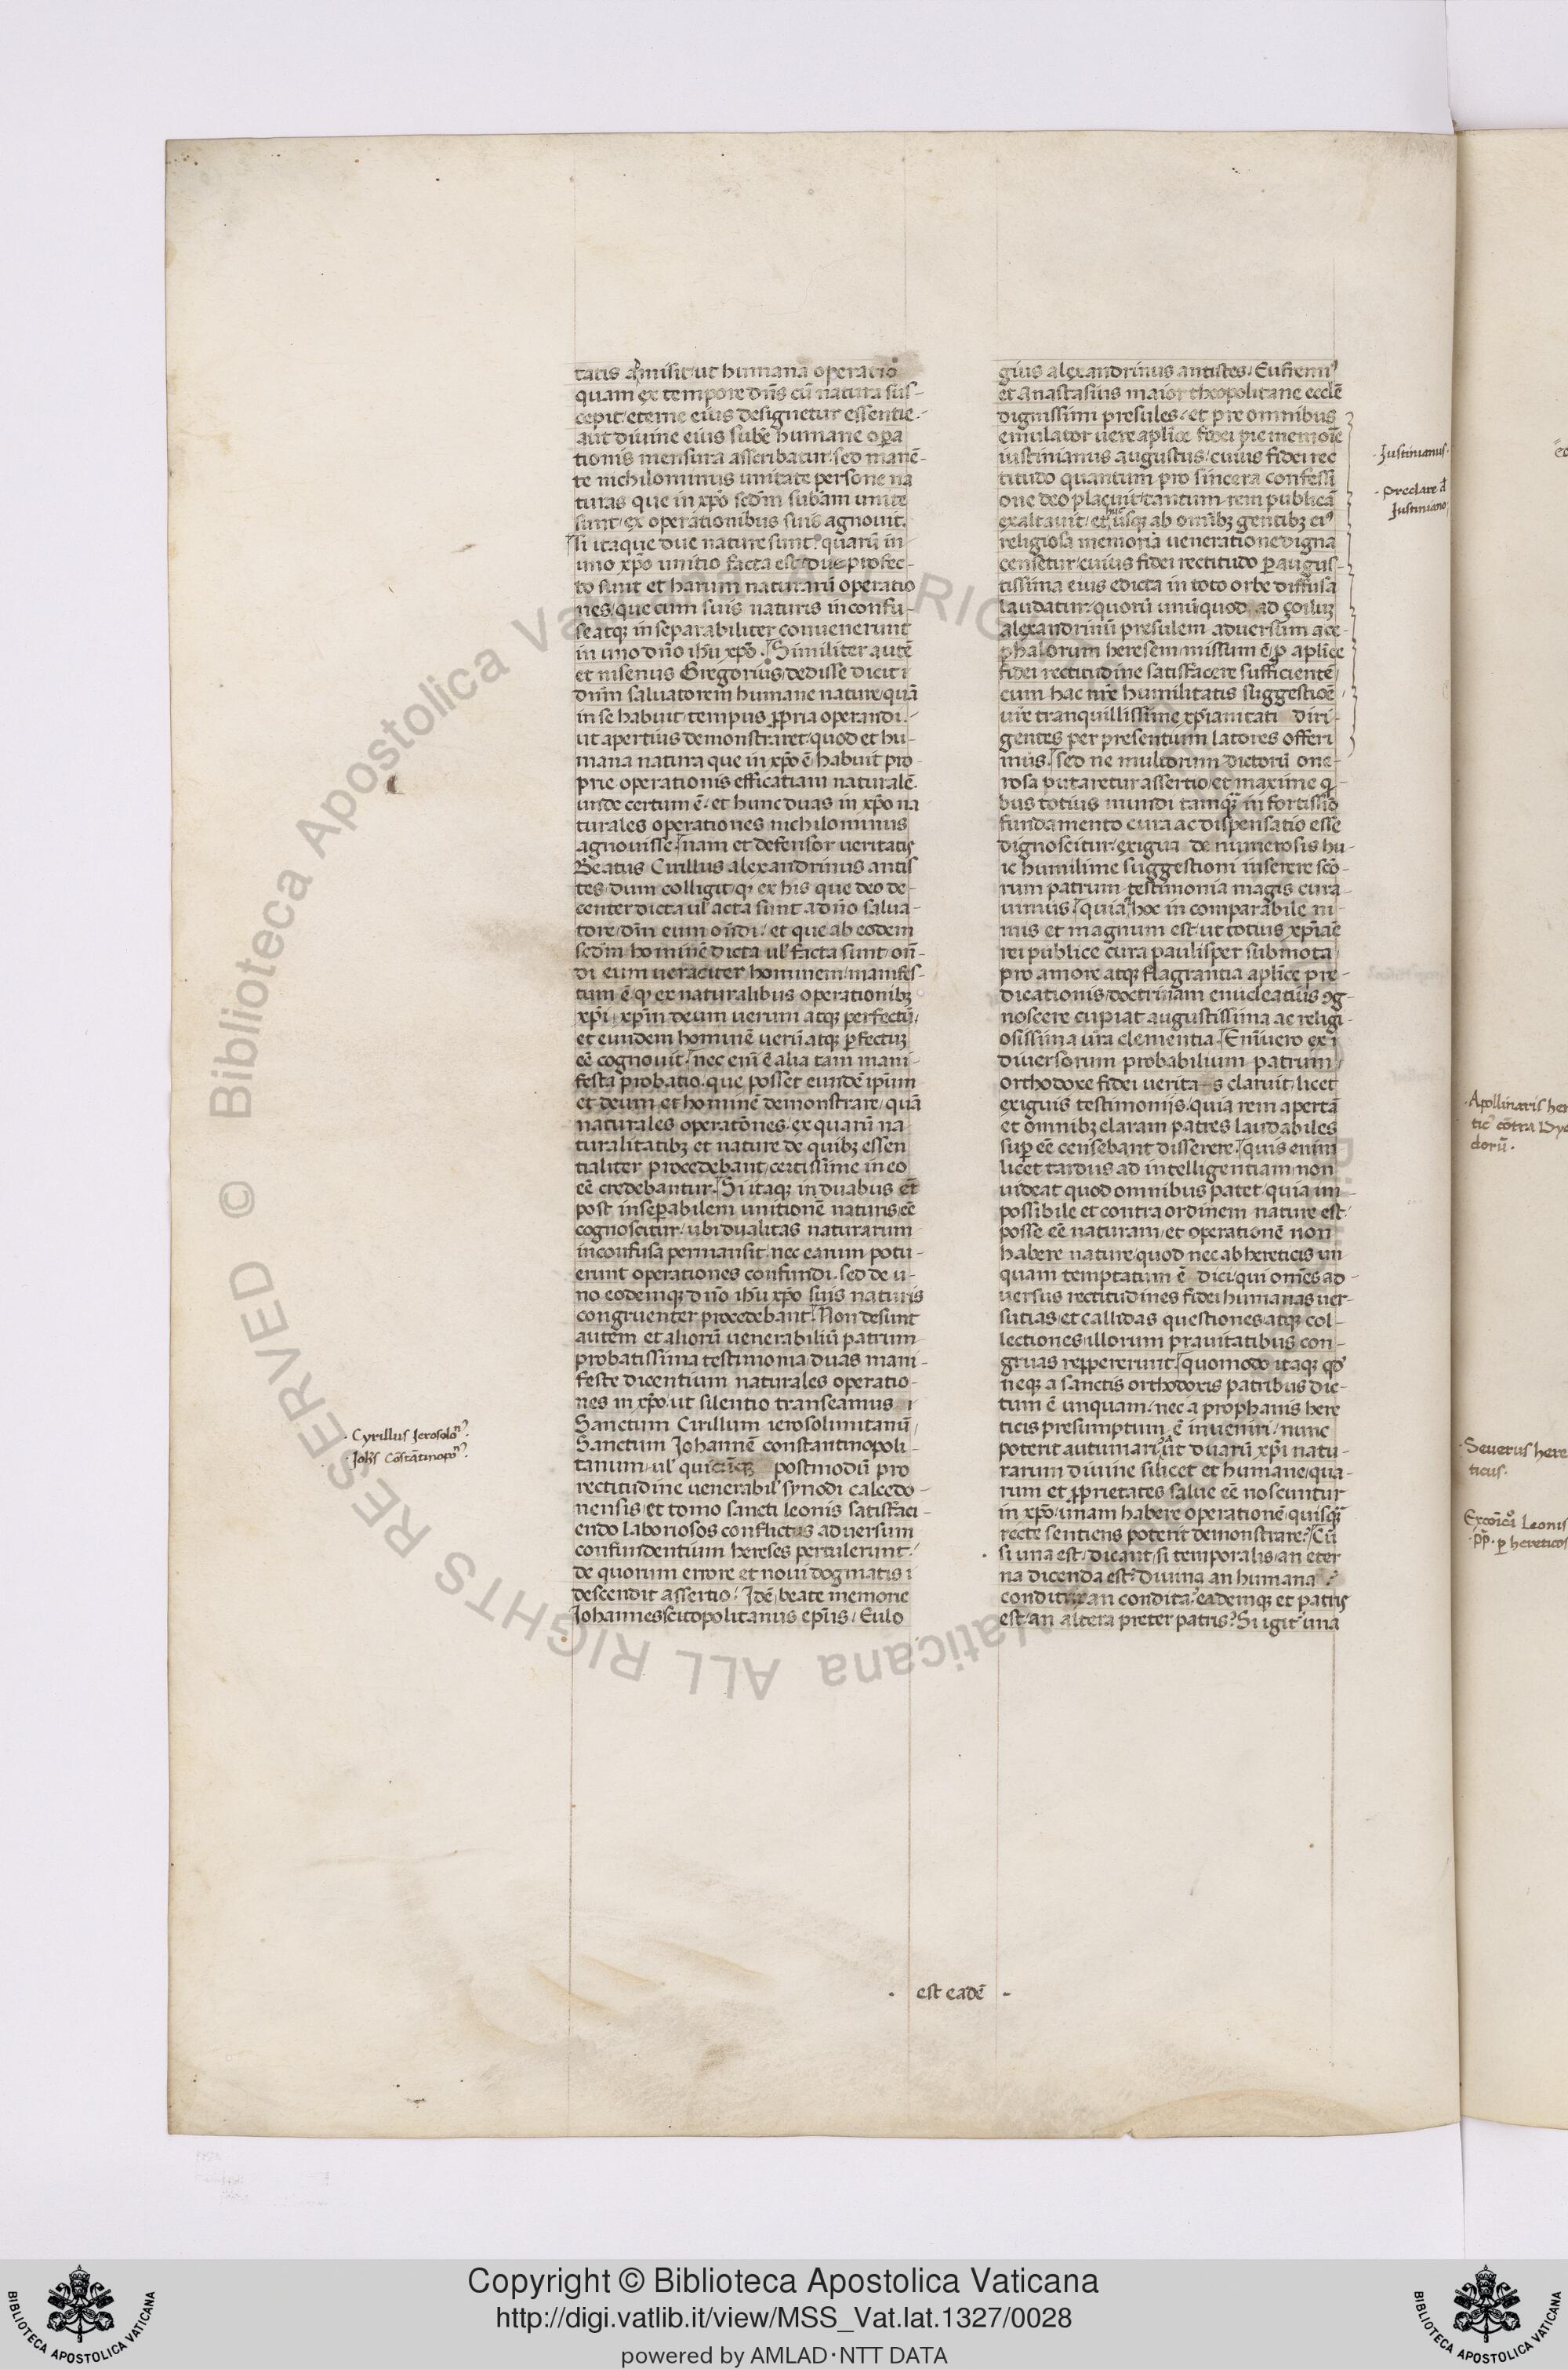 tatis amisit/ut humana operatio
quam ex tempore dn̄s cū natura sus-
cepit/eterne eius designetur essentie.
aut diuine eius subē humane opa
tionis mensura asscribatur/sed manē-
te nichilominus unitate persone na
turas que in xp̄o sedm̄ subāam unite
sunt/ex operationibus suis agnouit.
si itaque due nature sunt quarū in-
uno xp̄o unitio facta est/due profec-
to sunt et harum naturarū operatio
nes/que cum suis naturis inconfu-
se atqꝫ inseparabiliter conuenerunt
in uno dn̄o ihū xp̄o. Similiter autē
et nisenus Gregorius/dedisse dicit i
dnm̄ saluatorem humane nature/quā
in se habuit/tempus ꝓpria operandi.
ut apertius demonstraret/quod et hu-
mana natura que in xp̄o ē habuit pro-
prie operationis efficatiam naturalē.
unde certum ē. et hunc duas in xp̄o na
turales operationes nichilominus
agnouisse. nam et defensor ueritatis
Beatus Cirillus alexandrinus antis
tes/dum colligit/qꝫ ex his que deo de-
center dicta ul' acta sunt a dn̄o salua-
tore/dm̄ eum on̄di. et que ab eodem
sedm̄ hominē dicta ul' facta sunt/on̄-
di eum ueraciter hominem/manifes-
tum ē qꝫ ex naturalibus operationibꝫ
xp̄i/xp̄m deum uerum atqꝫ perfectū/
et eundem hominē uerū atqꝫ ꝑfectuꝫ
eē cognouit. nec enī ē alia tam mani-
festa probatio. que posset eundē ip̄um
et deum et hominē demonstrare/quā
naturales operatōnes. ex quarū na
turalitatibꝫ et nature de quibꝫ essen
tialiter procedebant/certissime in eo
eē credebantur. Si itaqꝫ in duabus et̄
post insepabilem unitionē naturis eē
cognoscitur. ubi dualitas naturarum
inconfusa permansit. nec earum potu-
erunt operationes confundi. sed de u-
no eodemqꝫ dn̄o ihū xp̄o suis naturis
congruenter procedebant. Non desunt
autem et aliorū uenerabiliū patrum
probatissima testimonia/duas mani-
feste dicentium naturales operatio-
nes in xp̄o/ut silentio transeamus i
Sanctum Cirillum ierosolimitanū/
Sanctum Johannē constantinopoli-
tanum/ul' quicūqꝫ postmodū pro
rectitudine uenerabil' synodi calcedo-
nensis/et tomo sancti leonis satisfaci-
endo laboriosos conflictus aduersum
confundentium hereses pertulerunt.
de quorum errore et noui dogmatis i
descendit assertio. Idē beate memorie
Johannes scitopolitanus epīs/Eulo
· Cyrillus Jerosolo
· Johēs Cōstātinopo
gius alexandrinus antistes/Eufremiꝰ
et Anastasius maior theopolitane ecclē
dignissimi presules/et pre omnibus
emulator uere aplīce fidei pie memorīe
iustinianus augustus/cuius fidei rec
titudo quantum pro sincera confessi
one deo placuit/tantum rem publicā
exaltauit/et hucusqꝫ ab omībꝫ gentibꝫ eiꝰ
religiosa memoria ueneratione digna
censetur/cuius fidei rectitudo ꝑ augus-
tissima eius edicta in toto orbe diffusa
laudatur/quorū unū quod ad çoiluꝫ
alexandrinū presulem aduersum ace-
phalorum heresem/missum ē/ꝓ aplīce
fidei rectitudine satisfacere sufficiente/
cum hac nrē humilitatis suggestiōe/
ure tranquillissime xp̄ianitati diri-
gentes per presentium latores offeri
mus. sed ne multorum dictorū one-
rosa putaretur assertio/et maxime q-
bus totius mundi tamqꝫ in fortissīo
fundamento cura ac dispensatio esse
dignoscitur/exigua de numerosis hu-
ic humilime suggestioni inserere scō-
rum patrum testimonia magis cura-
uimus. quia hoc in comparabile ni-
mis et magnum est/ut totius xp̄iāe
rei publice cura paulisper submota/
pro amore atqꝫ flagrantia aplīce pre-
dicationis/doctrinam enucleatius ꝯg-
noscere cupiat augustissima ac religi-
osissima ur̄a clementia. Enīuero ex i
diuersorum probabilium patrum/
orthodoxe fidei uerita-s claruit/licet
exiguis testimoniis. quia rem apertā
et omnibꝫ claram patres laudabiles
suꝑ eē censebant disserere. quis enim
licet tardus ad intelligentiam/non
uideat quod omnibus patet/quia im-
possibile et contra ordinem nature est.
posse eē naturam/et operationē non
habere nature/quod nec ab hereticis un
quam temptatum ē dici/qui omēs ad-
uersus rectitudines fidei humanas uer-
sutias/et callidas questiones/atqꝫ col-
lectiones/illorum prauitatibus con-
gruas reppererunt. quomodo itaqꝫ qđ
neqꝫ a sanctis orthodoxis patribus dic-
tum ē unquam/nec a prophanis here
ticis presumptum ē inueniri/nunc
poterit autumari/ut duarū xp̄i natu-
rarum diuine silicet et humane/qua-
rum et ꝓprietates salue eē noscuntur
in xp̄o/unam habere operationē/quisqꝫ
recte sentiens poterit demonstrare. Cū
si una est/dicant/si temporalis/an eter
na dicenda est. diuina an humana
conditrix an condita. eademqꝫ et patris
est/an altera preter patris. Si igit' una
· Justinianus ·
· preclare d̄
Justiniano/
· est eadē ·
· Apollinaris her
dorū ·
· Seuerus here
ticus ·
Leonis
p̄p · ꝑ hereticos
Copyright © Biblioteca Apostolica Vaticana
http://digi.vatlib.it/view/MSS_Vat.lat.1327/0028
powered by AMLAD·NTT DATA
BIBLIOTECA APOSTOLICA VATICANA
BIBLIOTECA APOSTOLICA VATICANA
© Biblioteca Apostolica Vaticana ALL RIGHTS RESERVED